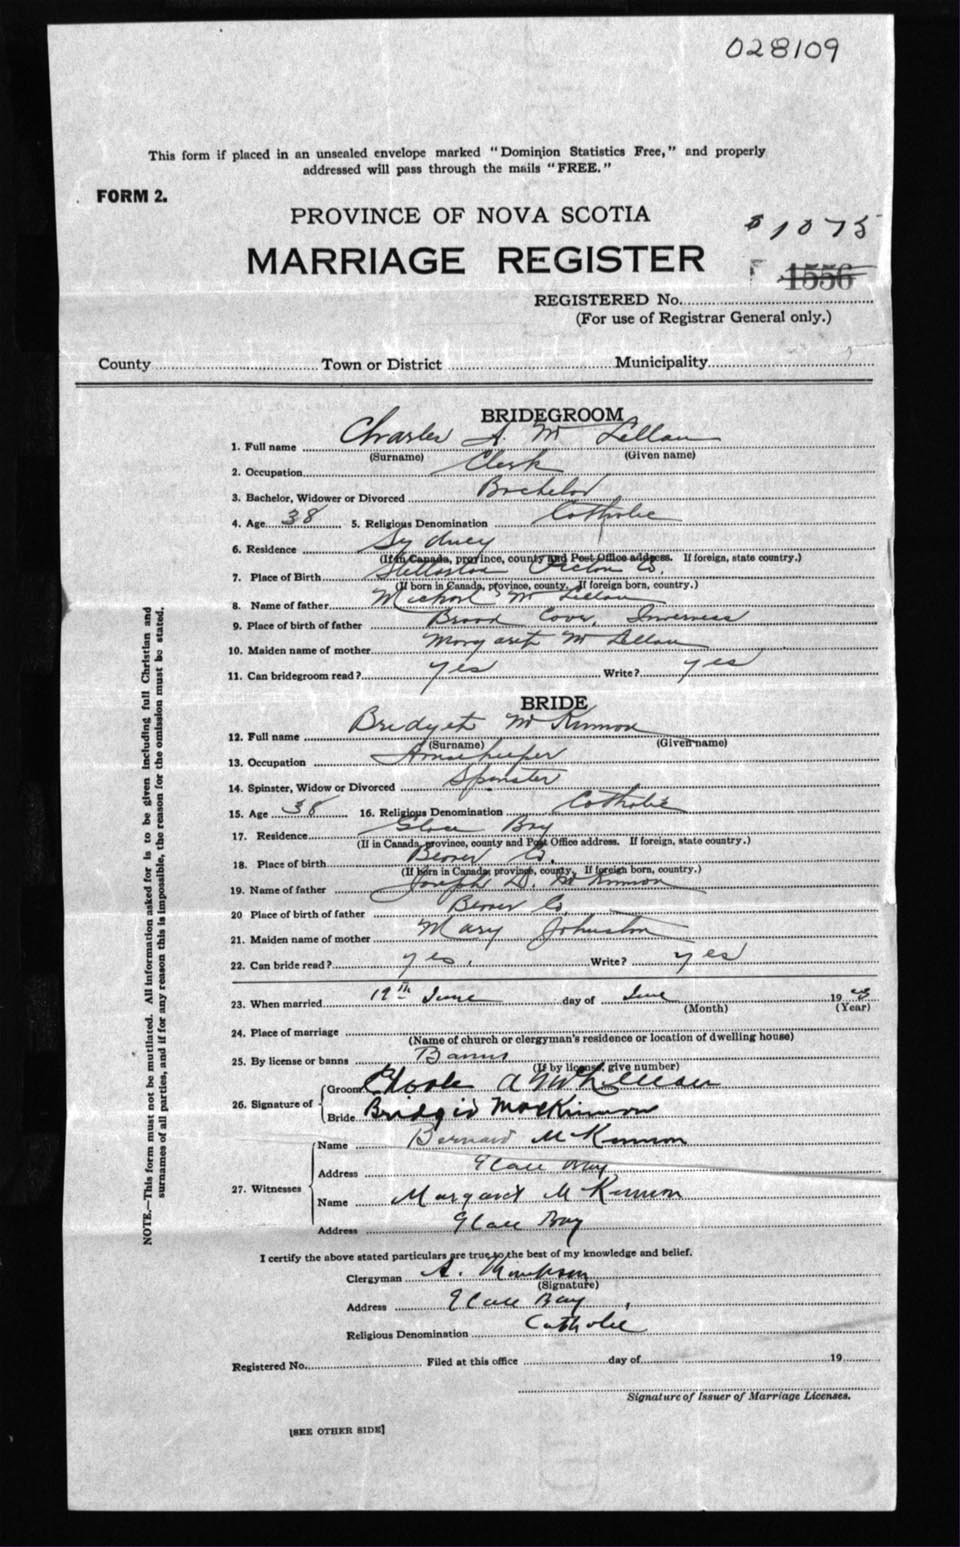 028109
This form if placed in an unsealed envelope marked "Dominion Statistics Free," and properly
addressed will pass through the mails "FREE."
FORM 2.
PROVINCE OF NOVA SCOTIA
1075
MARRIAGE REGISTER
1556
REGISTERED No.
(For use of Registrar General only.)
County Town or District Municipality
BRIDEGROOM
1. Full name Charles A. McLellan
(Surname) (Given name)
2. Occupation Clerk
3. Bachelor, Widower or Divorced Bachelor
4. Age 38 5. Religious Denomination Catholic
6. Residence Sydney
(If in Canada, province, county and Post Office address. If foreign, state country.)
7. Place of Birth Stellarton Pictou Co.
(If born in Canada, province, county. If foreign born, country.)
8. Name of father Michael McLellan
9. Place of birth of father Broad Cove, Inverness
10. Maiden name of mother Margaret McLellan
11. Can bridegroom read? yes Write? yes
BRIDE
12. Full name Bridget McKinnon
(Surname) (Given name)
13. Occupation Housekeeper
14. Spinster, Widow or Divorced Spinster
15. Age 38 16. Religious Denomination Catholic
17. Residence Glace Bay
(If in Canada, province, county and Post Office address. If foreign, state country.)
18. Place of birth Co.
(If born in Canada, province, county. If foreign born, country.)
19. Name of father Joseph D. McKinnon
20 Place of birth of father Co.
21. Maiden name of mother Mary Johnston
22. Can bride read? yes. Write? yes
23. When married June day of June 19
(Month) (Year)
24. Place of marriage
(Name of church or clergyman's residence or location of dwelling house)
25. By license or banns Banns
(If by license, give number)
26. Signature of Groom A McLellan
Bride MacKinnon
27. Witnesses Name Bernard McKinnon
Address Glace Bay
Name Margaret McKinnon
Address Glace Bay
I certify the above stated particulars are true to the best of my knowledge and belief.
Clergyman A.
(Signature)
Address Glace Bay
Religious Denomination Catholic
Registered No. Filed at this office day of 19
Signature of Issuer of Marriage Licenses.
[SEE OTHER SIDE]
NOTE.—This form must not be mutilated. All information asked for is to be given including full Christian and
surnames of all parties, and if for any reason this is impossible, the reason for the omission must be stated.